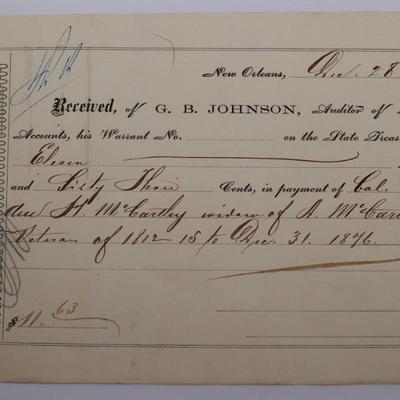 New Orleans, Dec. 28
Received, of G. B. JOHNSON, Auditor of
Accounts, his Warrant No. on the State Treas
Eleven
and Sixty Three Cents, in payment of Bal.
due H. McCarthy widow of A. McCar
Veteran of 1812-15 to Dec. 31. 1876.
$11.63